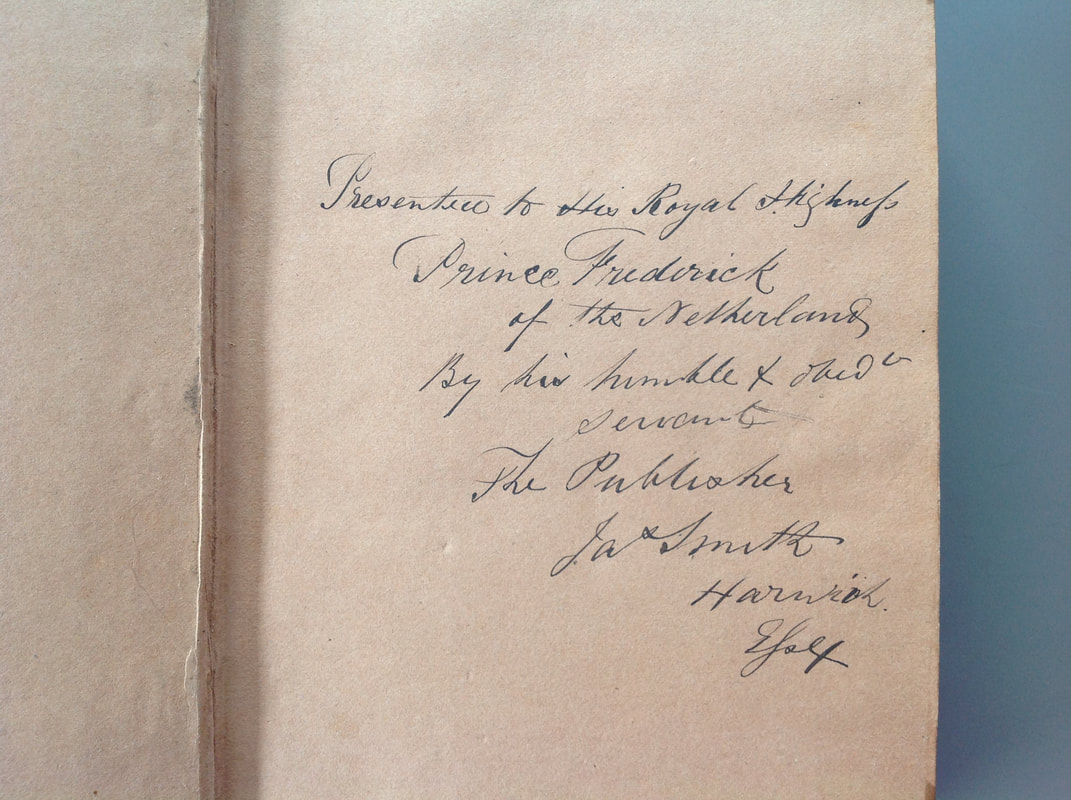 Presented to His Royal Highness
Prince Frederick
of the Netherlands
By his humble & obed^t
servant
The Publisher
Ja^s Smith
Harwich.
Essex